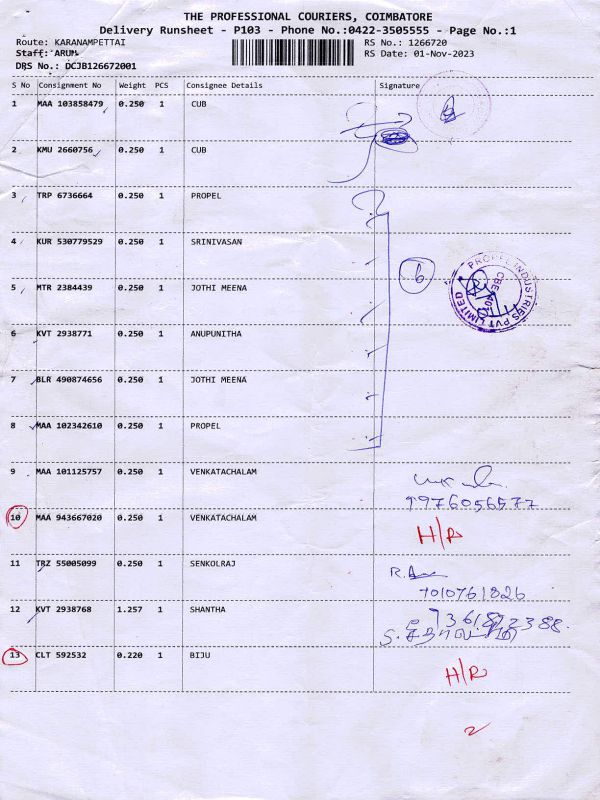 THE PROFESSIONAL COURIERS, COIMBATORE
Delivery Runsheet - P103 - Phone No.:0422-3505555 - Page No.:1
Route: KARANAMPETTAI RS No.: 1266720
Staff: ARUM RS Date: 01-Nov-2023
DRS No.: DCJB126672001
S No Consignment No Weight PCS Consignee Details Signature
1 MAA 103858479 0.250 1 CUB
2 KMU 2660756 0.250 1 CUB
3 TRP 6736664 0.250 1 PROPEL
4 KUR 530779529 0.250 1 SRINIVASAN
6
PROPEL INDUSTRIES PVT LIMITED
5 MTR 2384439 0.250 1 JOTHI MEENA
6 KVT 2938771 0.250 1 ANUPUNITHA
7 BLR 490874656 0.250 1 JOTHI MEENA
8 MAA 102342610 0.250 1 PROPEL
9 MAA 101125757 0.250 1 VENKATACHALAM
9976056577
10 MAA 943667020 0.250 1 VENKATACHALAM H/R
11 TRZ 55005099 0.250 1 SENKOLRAJ
7010761826
12 KVT 2938768 1.257 1 SHANTHA
13 CLT 592532 0.220 1 BIJU H/R
2